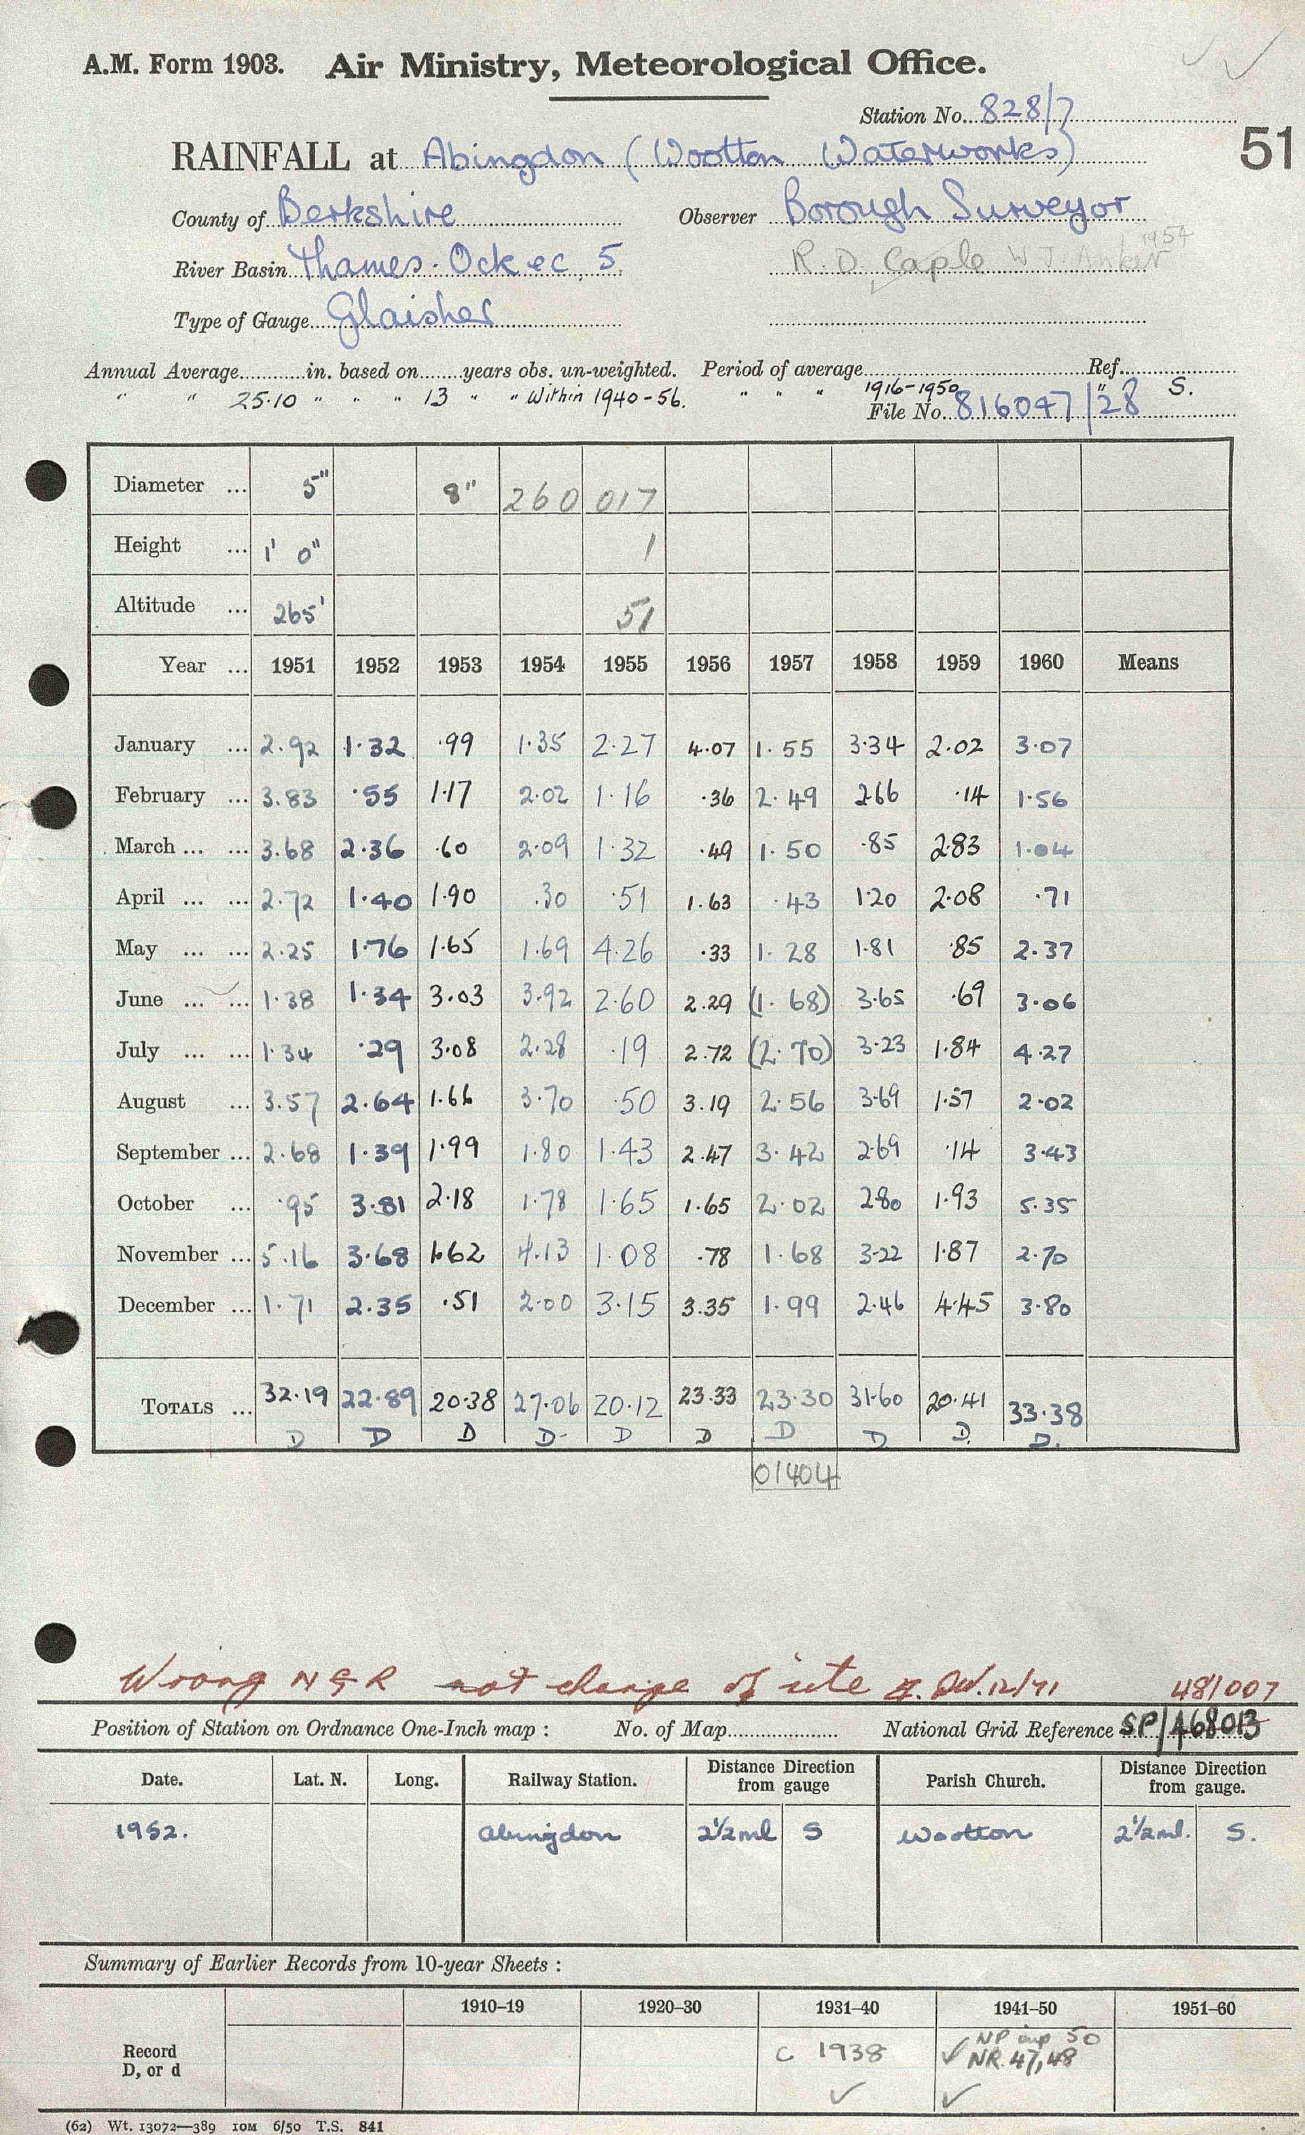 A.M. Form 1903. Air Ministry, Meteorological Office.
Station No. 828/7
RAINFALL at Abingdon (Wootton Waterworks)
51
County of Berkshire Observer Borough Surveyor
River Basin Thames. Ock ec. 5 R.D. Caple W J Anker 1954
Type of Gauge Glaisher
Annual Average............in. based on........years obs. un-weighted. Period of average............Ref............
" " 25.10 " " " 13 " " Within 1940-56. " " " 1916-1950 " S.
File No. 816047/28
Diameter ... 5" 8" 260 017
Height ... 1' 0" 1
Altitude ... 265' 51
Year ... 1951 1952 1953 1954 1955 1956 1957 1958 1959 1960 Means
January ... 2.92 1.32 .99 1.35 2.27 4.07 1.55 3.34 2.02 3.07
February ... 3.83 .55 1.17 2.02 1.16 .36 2.49 2.66 .14 1.56
March ... ... 3.68 2.36 .60 2.09 1.32 .49 1.50 .85 2.83 1.04
April ... ... 2.72 1.40 1.90 .30 .51 1.63 .43 1.20 2.08 .71
May ... ... 2.25 1.76 1.65 1.69 4.26 .33 1.28 1.81 .85 2.37
June ... ... 1.38 1.34 3.03 3.92 2.60 2.29 (1.68) 3.65 .69 3.06
July ... ... 1.34 .29 3.08 2.28 .19 2.72 (2.70) 3.23 1.84 4.27
August ... 3.57 2.64 1.66 3.70 .50 3.19 2.56 3.69 1.57 2.02
September ... 2.68 1.39 1.99 1.80 1.43 2.47 3.42 2.69 .14 3.43
October ... .95 3.81 2.18 1.78 1.65 1.65 2.02 2.80 1.93 5.35
November ... 5.16 3.68 1.62 4.13 1.08 .78 1.68 3.22 1.87 2.70
December ... 1.71 2.35 .51 2.00 3.15 3.35 1.99 2.46 4.45 3.80
TOTALS ... 32.19 22.89 20.38 27.06 20.12 23.33 23.30 31.60 20.41 33.38
D D D D D D D D D. D.
01404
Wrong NGR not change of site 12/71 48/007
Position of Station on Ordnance One-Inch map : No. of Map.................... National Grid Reference SP/468013
Date. Lat. N. Long. Railway Station. Distance Direction from gauge Parish Church. Distance Direction from gauge.
1952. Abingdon 2½ ml S Wootton 2½ ml. S.
Summary of Earlier Records from 10-year Sheets :
1910–19 1920–30 1931–40 1941–50 1951–60
Record D, or d C 1938 ✓ ✓ NP 50 NR. 47,48 ✓
(62) Wt. 13072—389 10M 6/50 T.S. 841